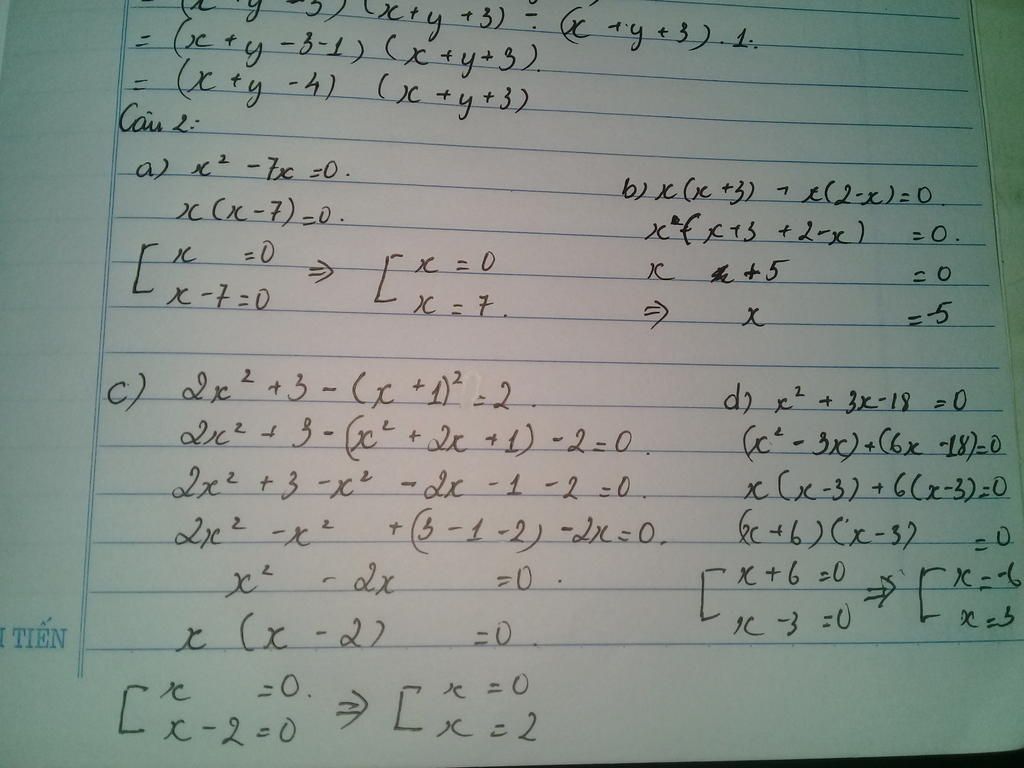 = (x + y - 3) (x + y + 3) - (x + y + 3) . 1.
= (x + y - 3 - 1) (x + y + 3).
= (x + y - 4) (x + y + 3)
Câu 2:
a) x² - 7x = 0.
x(x - 7) = 0.
[ x = 0
x - 7 = 0 ⇒ [ x = 0
x = 7.
b) x(x + 3) + x(2 - x) = 0.
(x + 3 + 2 - x) = 0.
x + 5 = 0
⇒ x = -5
c) 2x² + 3 - (x + 1)² = 2.
2x² + 3 - (x² + 2x + 1) - 2 = 0.
2x² + 3 - x² - 2x - 1 - 2 = 0.
2x² - x² + (3 - 1 - 2) - 2x = 0.
x² - 2x = 0.
x (x - 2) = 0.
[ x = 0.
x - 2 = 0 ⇒ [ x = 0
x = 2
d) x² + 3x - 18 = 0
(x² - 3x) + (6x - 18) = 0
x(x - 3) + 6(x - 3) = 0
(x + 6)(x - 3) = 0
[ x + 6 = 0
x - 3 = 0 ⇒ [ x = -6
x = 3
TIẾN